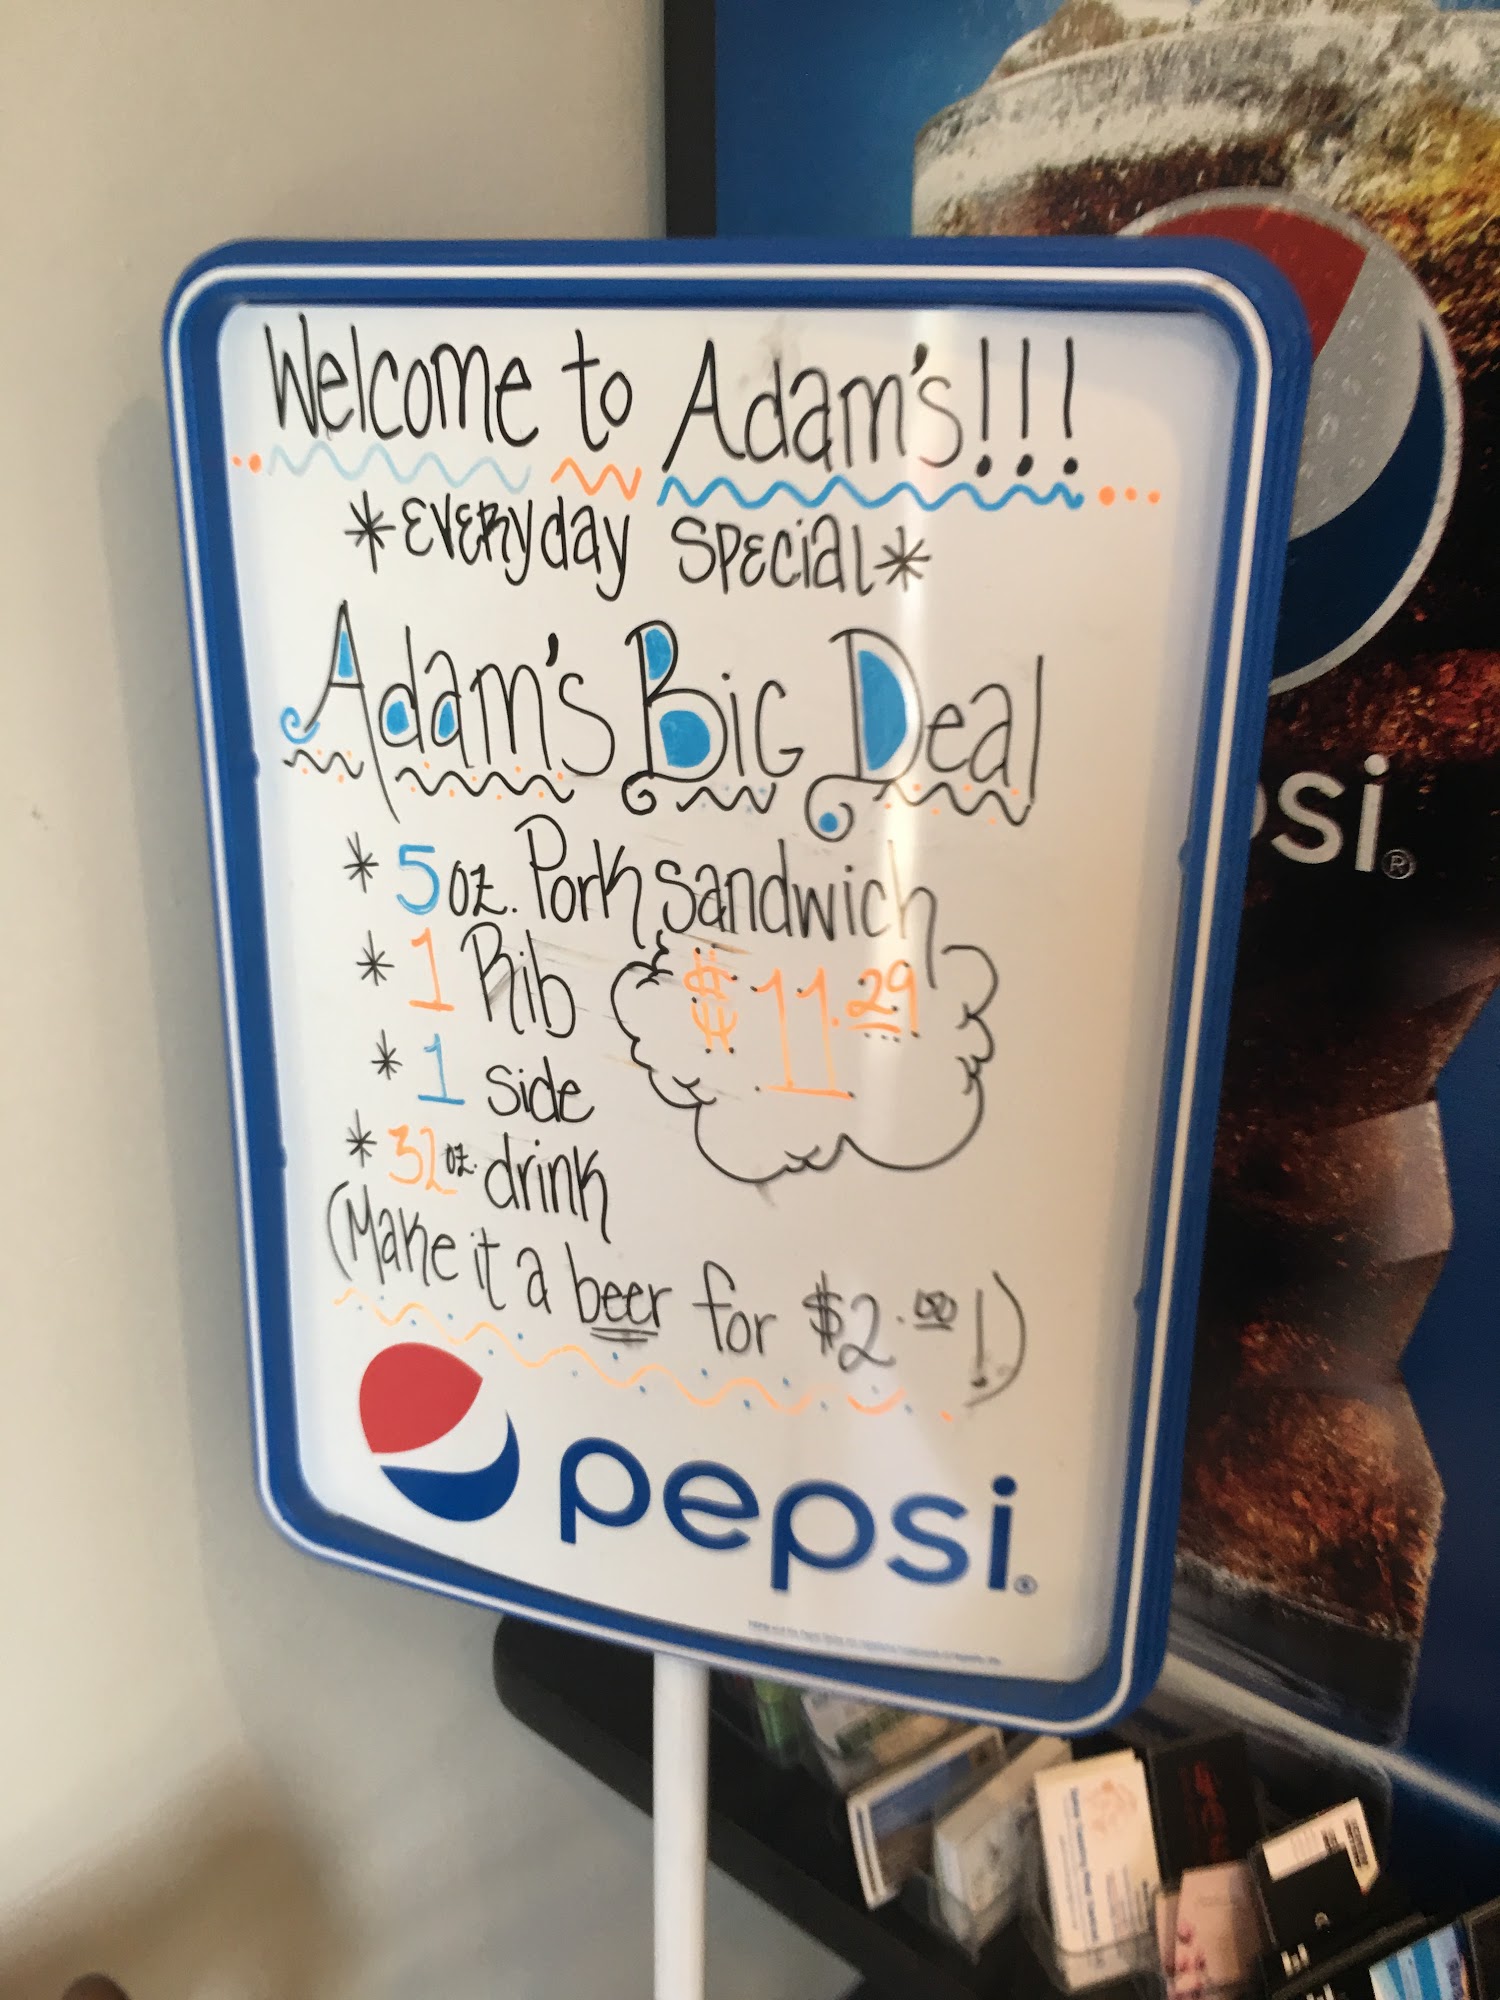 Welcome to Adam's!!!
*Everyday Special*
Adam's Big Deal
* 5 oz. Pork sandwich
* 1 Rib
$11.29
* 1 side
* 32 oz. drink
(Make it a beer for $2.00!)
pepsi®
si®